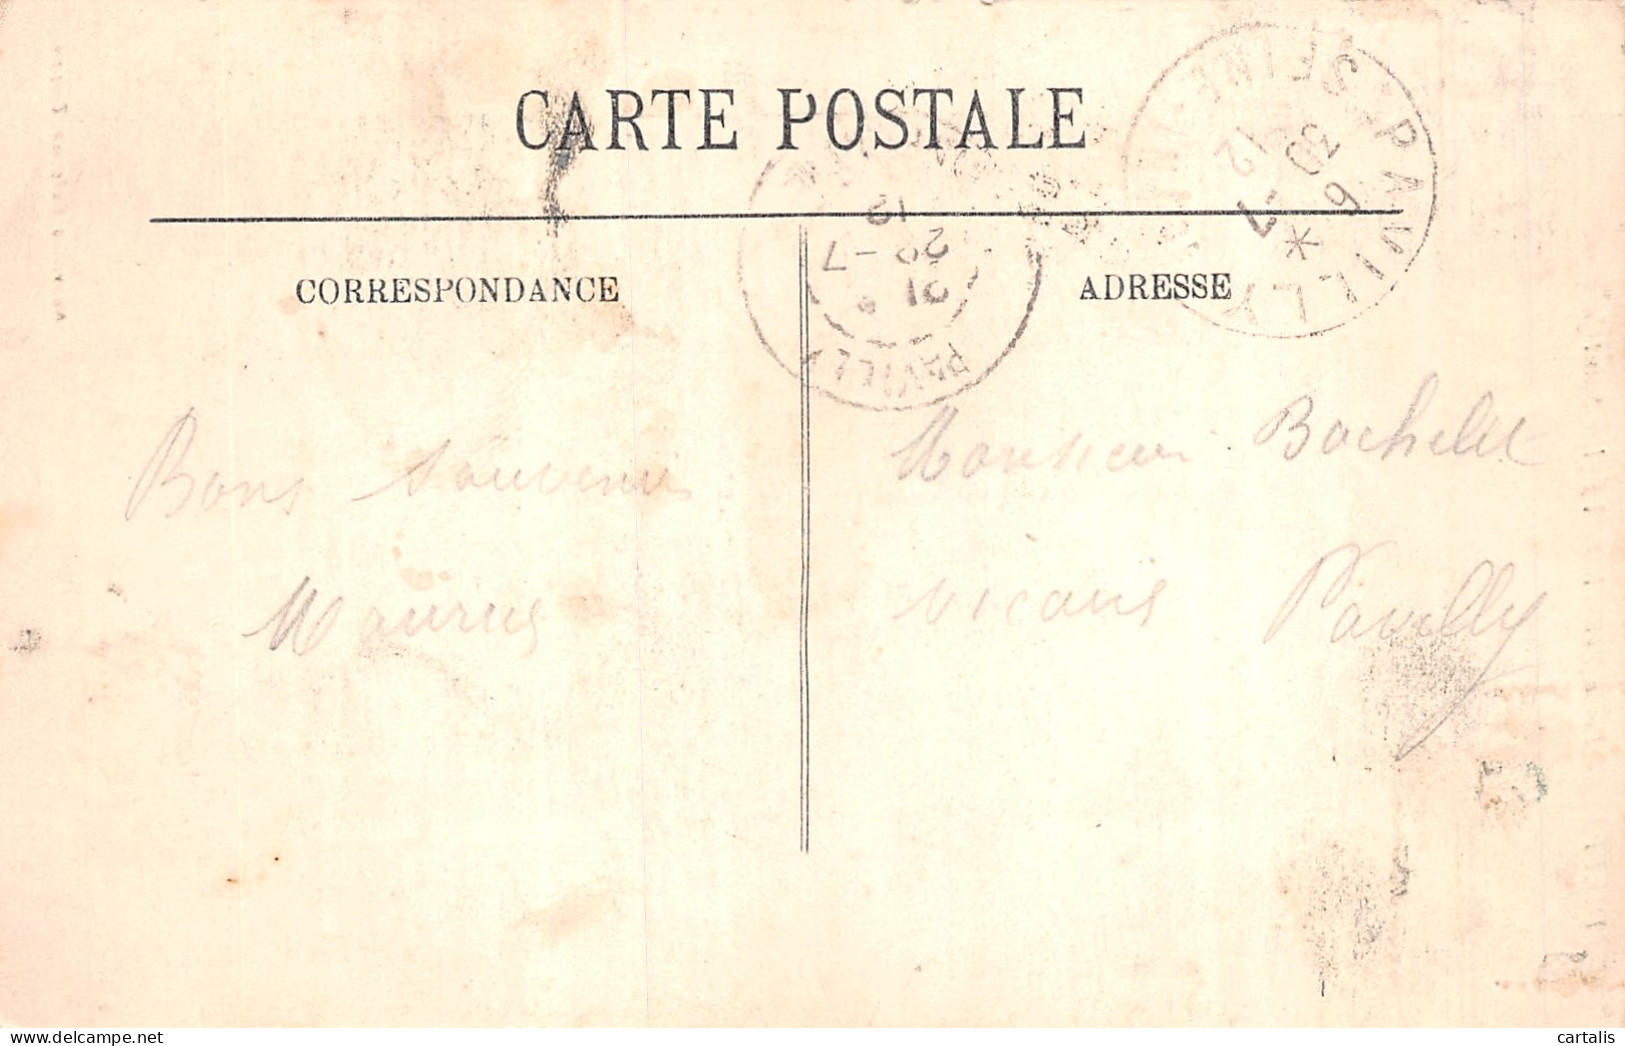 CARTE POSTALE
PAVILLY
SEINE-INFRE
6
30
-7
12
PAVILLY
21
28 -7
12
CORRESPONDANCE
ADRESSE
Bons Souvenirs
Monsieur Bachelet
vicaire Pavilly
cartalis
delcampe.net